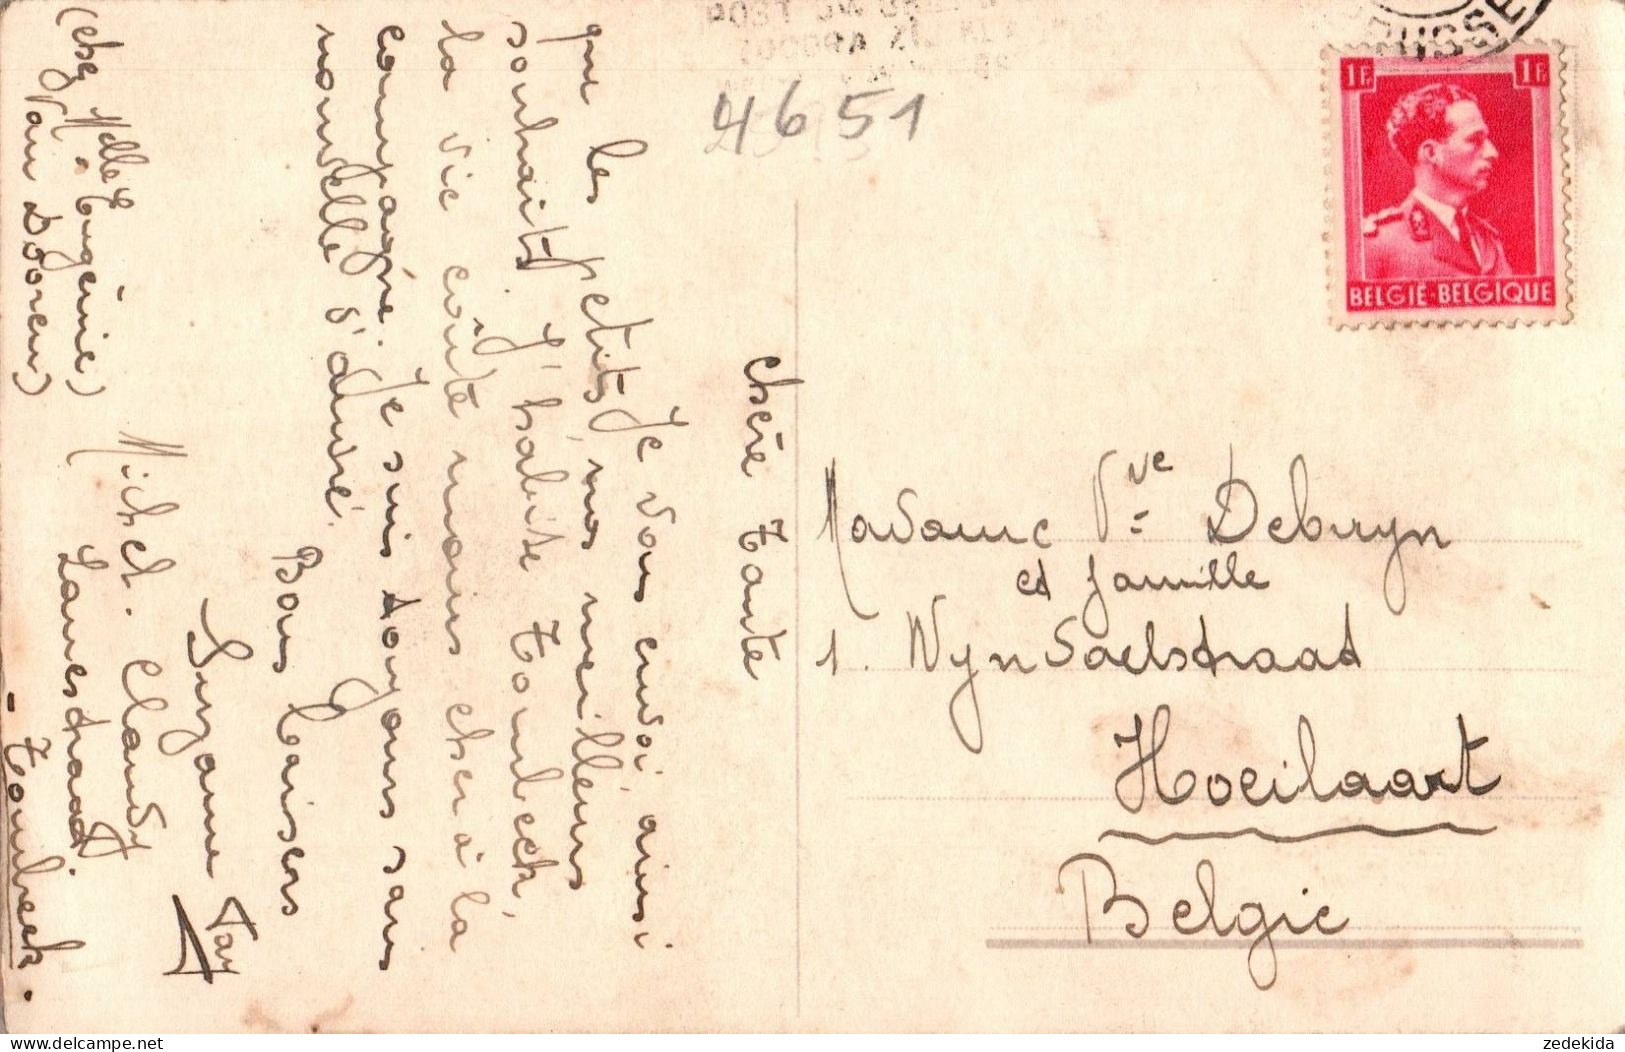 4651
1F 1F
BELGIË-BELGIQUE
chère Tante
Je vous envoi ainsi
que les petits nos meilleurs
souhaits. J'habite Tombeek,
la vie coûte moins cher à la
campagne. Je suis toujours sans
nouvelle d'André.
Bons baisers
Suzanne
Michel. Claudy
Lanestraat
- Tombeek.
(chez Melle Eugénie)
Van Dooren)
Madame Vve Debruyn
et famille
1. Wyndaelstraat
Hoeilaart
Belgie
zedekida